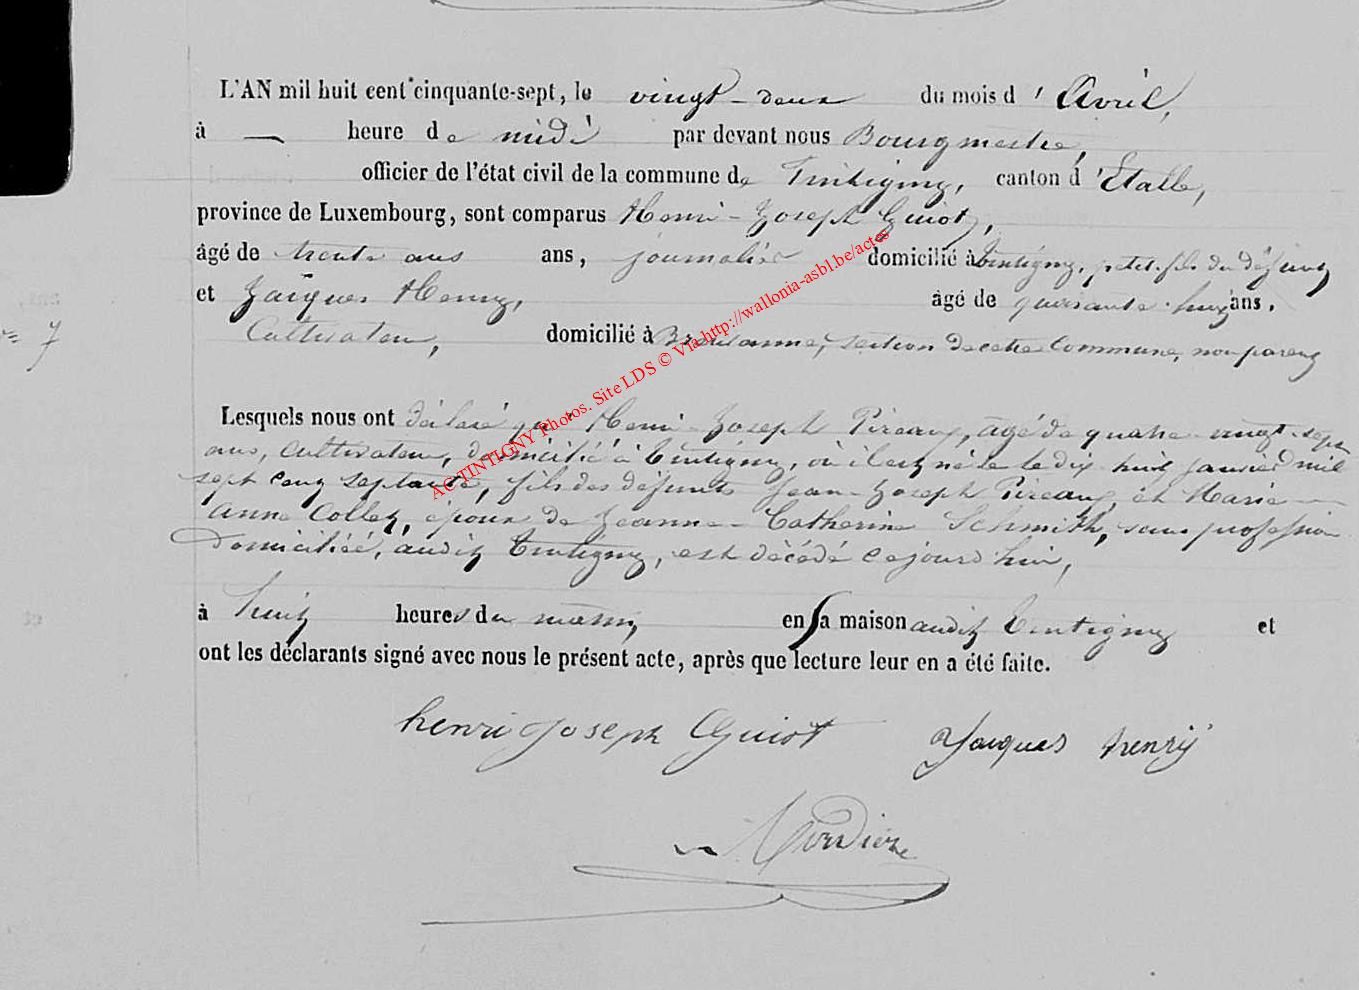 L'AN mil huit cent cinquante-sept, le vingt-deux du mois d'Avril,
à — heure de midi par devant nous Bourgmestre,
officier de l'état civil de la commune de Tintigny, canton d'Etalle,
province de Luxembourg, sont comparus Henri-Joseph Guiot,
âgé de trente ans ans, journalier domicilié à Tintigny, petit-fils du défunt
et Jacques Henry, âgé de quarante-huit ans,
Cultivateur, domicilié à Breuvanne, section de cette Commune, non parent
Lesquels nous ont déclaré que Henri-Joseph Pireaux, âgé de quatre-vingt-sept
ans, cultivateur, domicilié à Tintigny, où il est né le dix huit janvier mil
sept cent septante, fils des défunts Jean-Joseph Pireaux et Marie-
Anne Collet, époux de Jeanne-Catherine Schmith, sans profession
domiciliée, audit Tintigny, est décédé cejourd'hui,
à huit heures du matin, en sa maison audit Tintigny et
ont les déclarants signé avec nous le présent acte, après que lecture leur en a été faite.
henri joseph Guiot Jacques henrÿ
7
ACTINTIGNY Photos. Site LDS © Via http://wallonia-asbl.be/actes